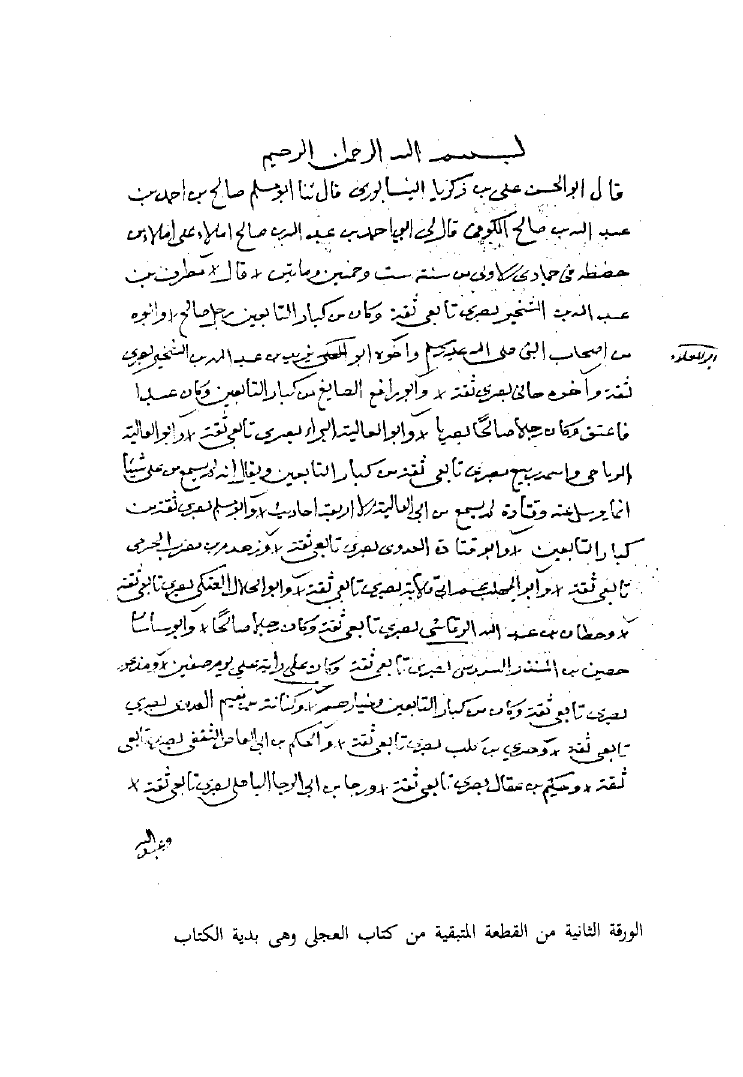 بسم الله الرحمن الرحيم
قال ابو الحسن على بن زكريا النيسابورى قال ثنا ابو مسلم صالح بن احمد بن
عبد الله بن صالح الكوفى قال لى ابى احمد بن عبد الله بن صالح املاء على املاه من
حفظه فى جمادى الاولى من سنة ست وخمسين ومايتين قال مطرف بن
عبد الله بن الشخير بصرى تابعى ثقة وكان من كبار التابعين رجل صالح وابوه
من اصحاب النبى صلى الله عليه وسلم واخوه ابو العلى يزيد بن عبد الله بن الشخير بصرى
ابو العلاء
ثقة واخوه هانى بصرى ثقة وابو رافع الصايغ من كبار التابعين وكان عبدا
فاعتق وكان رجلا صالحا بصريا وابو العالية البراء بصرى تابعى ثقة وابو العالية
الرياحى واسمه رفيع بصرى تابعى ثقة من كبار التابعين ويقال انه لم يسمع من على شيئا
انما يرسل عنه وقتادة لم يسمع من ابى العالية الا اربعة احاديث وابو مسلم بصرى ثقة من
كبار التابعين وابو قتادة العدوى بصرى تابعى ثقة وزهدم بن مضرب الجرمى
تابعى ثقة وابو المهلب عم ابى قلابة بصرى تابعى ثقة وابو الحلال العتكى بصرى تابعى ثقة
وحطان بن عبد الله الرقاشى بصرى تابعى ثقة وكان رجلا صالحا وابو ساسان
حصين بن المنذر السدوسى بصرى تابعى ثقة وكان على راية على يوم صفين
بصرى تابعى ثقة وكان من كبار التابعين وخيارهم وكنانة بن نعيم العدوى بصرى
تابعى ثقة وجرى بن كليب بصرى تابعى ثقة والحكم بن ابى العاص الثقفى بصرى تابعى
ثقة وحكيم بن عقال بصرى تابعى ثقة ورجا بن ابى الرجا الباهلى بصرى تابعى ثقة
وعبد الله
الورقة الثانية من القطعة المتبقية من كتاب العجلى وهى بدية الكتاب